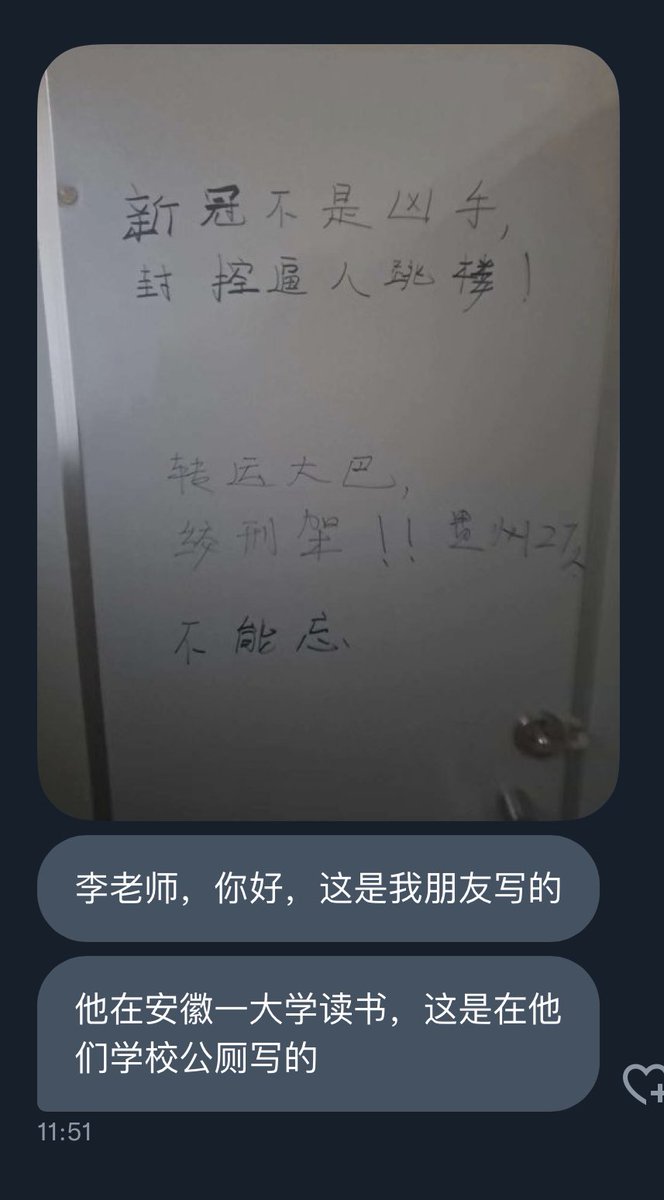 新冠不是凶手,
封控逼人跳楼!
转运大巴,
绞刑架!! 贵州27人
不能忘
李老师，你好，这是我朋友写的
他在安徽一大学读书，这是在他
们学校公厕写的
11:51